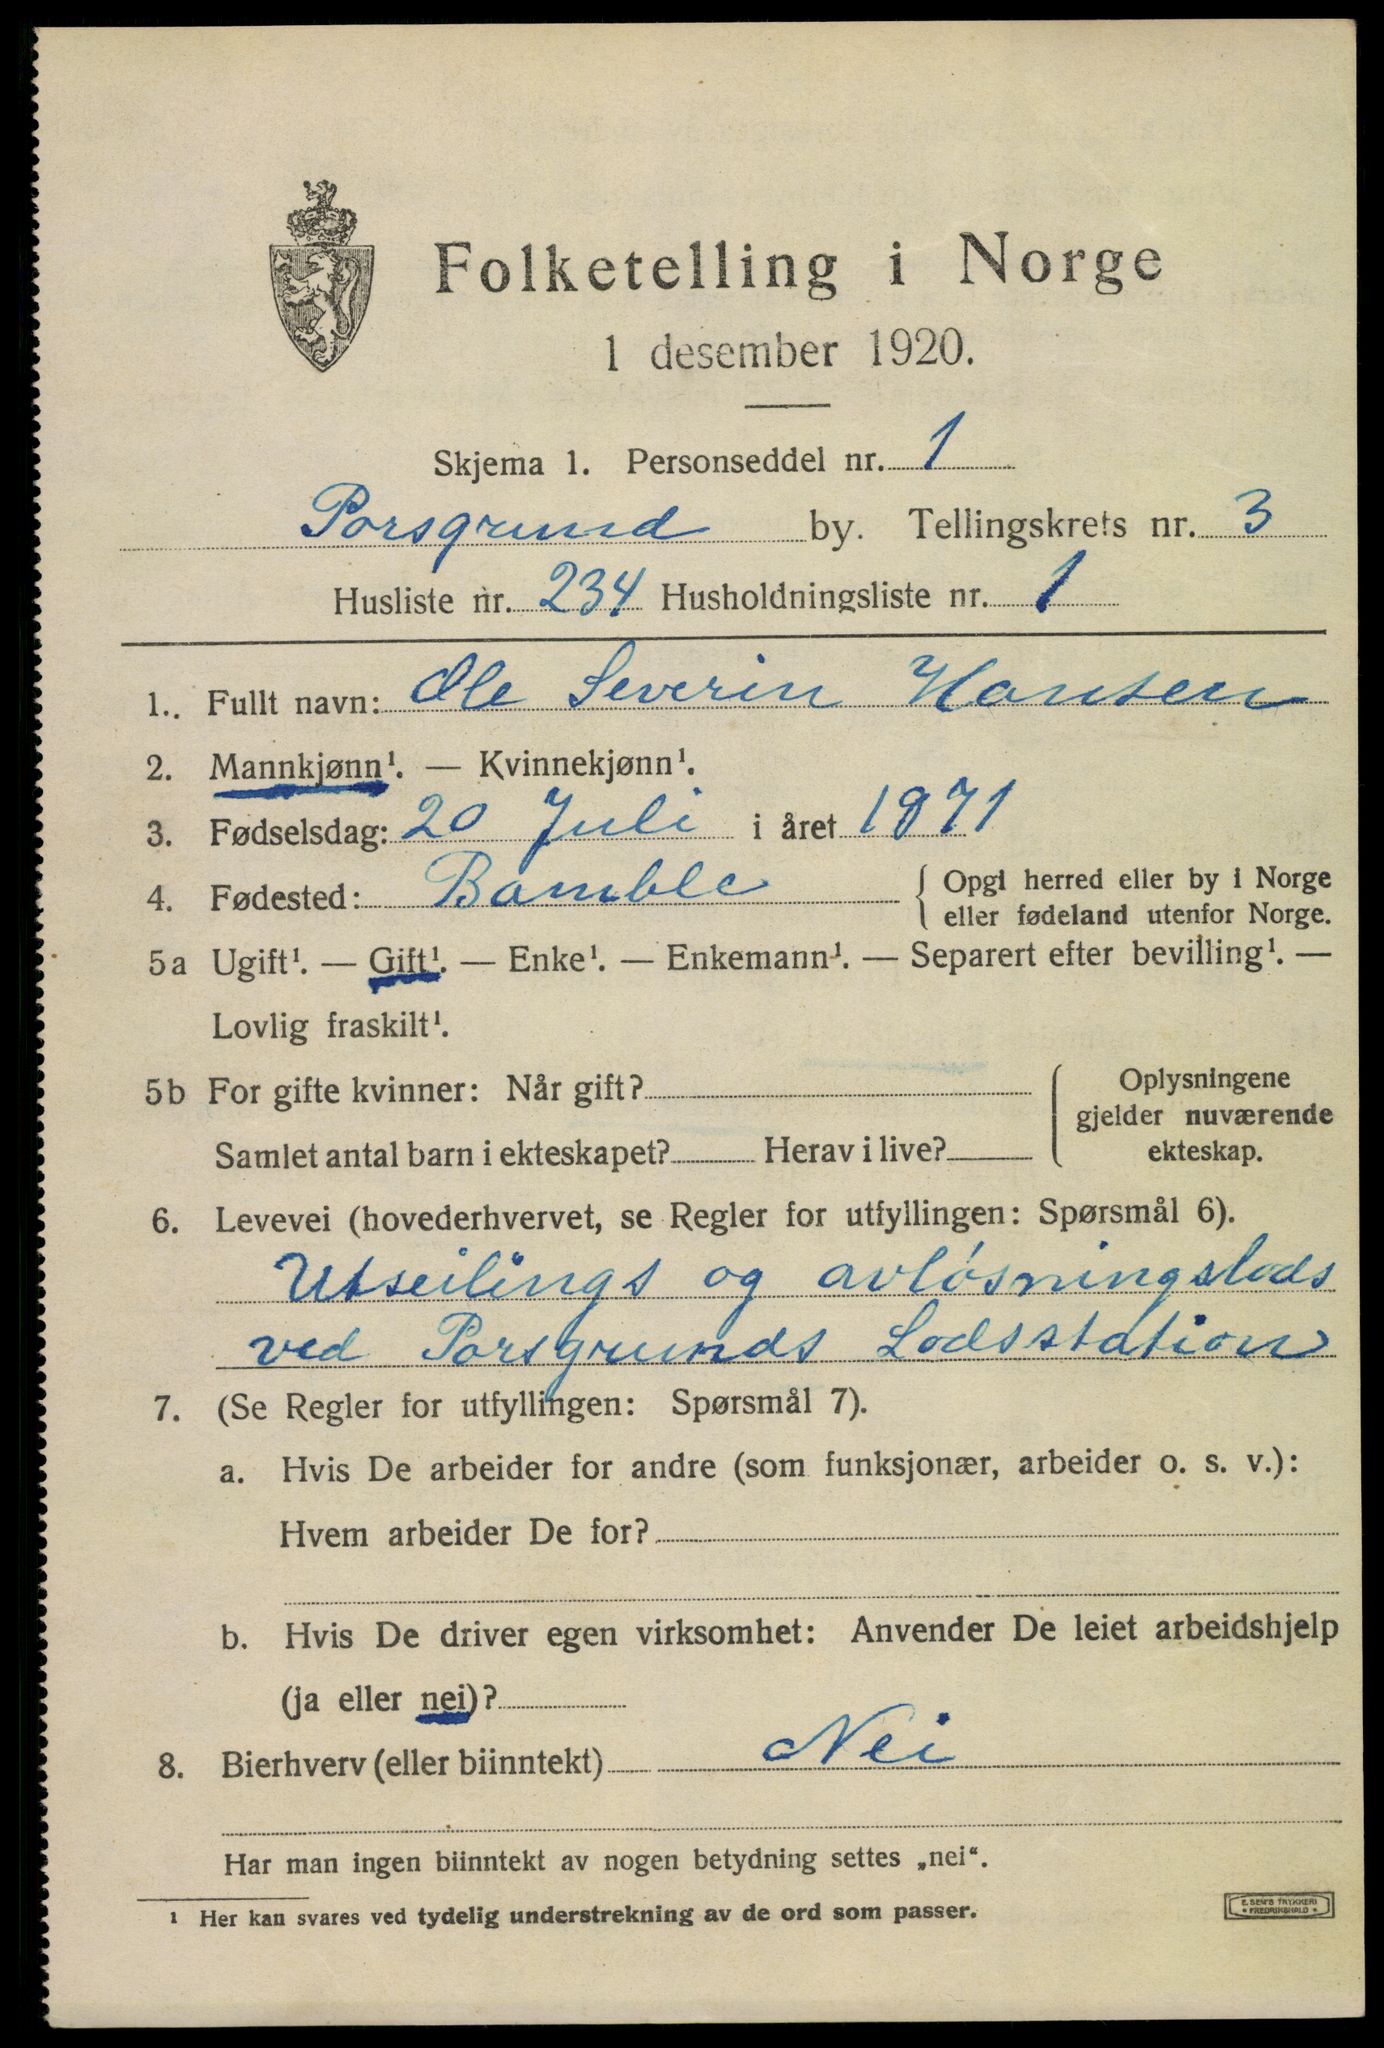 Folketelling i Norge
1 desember 1920.
Skjema 1. Personseddel nr. 1
Porsgrund by. Tellingskrets nr. 3
Husliste nr. 234 Husholdningsliste nr. 1
1.. Fullt navn: Ole Severin Hansen
2. Mannkjønn¹. — Kvinnekjønn¹.
3. Fødselsdag: 20 Juli i året 1871
4. Fødested: Bamble { Opgi herred eller by i Norge
eller fødeland utenfor Norge.
5a Ugift¹. — Gift¹. — Enke¹. — Enkemann¹. — Separert efter bevilling¹. —
Lovlig fraskilt¹.
5b For gifte kvinner: Når gift?
Samlet antal barn i ekteskapet? Herav i live?
Oplysningene
gjelder nuværende
ekteskap.
6. Levevei (hovederhvervet, se Regler for utfyllingen: Spørsmål 6).
Utseilings og avløsningslods
ved Porsgrunds Lodsstation
7. (Se Regler for utfyllingen: Spørsmål 7).
a. Hvis De arbeider for andre (som funksjonær, arbeider o. s. v.):
Hvem arbeider De for?
b. Hvis De driver egen virksomhet: Anvender De leiet arbeidshjelp
(ja eller nei)?
8. Bierhverv (eller biinntekt) Nei
Har man ingen biinntekt av nogen betydning settes „nei“.
¹ Her kan svares ved tydelig understrekning av de ord som passer.
E. SEM'S TRYKKERI
* FREDRIKSHALD *